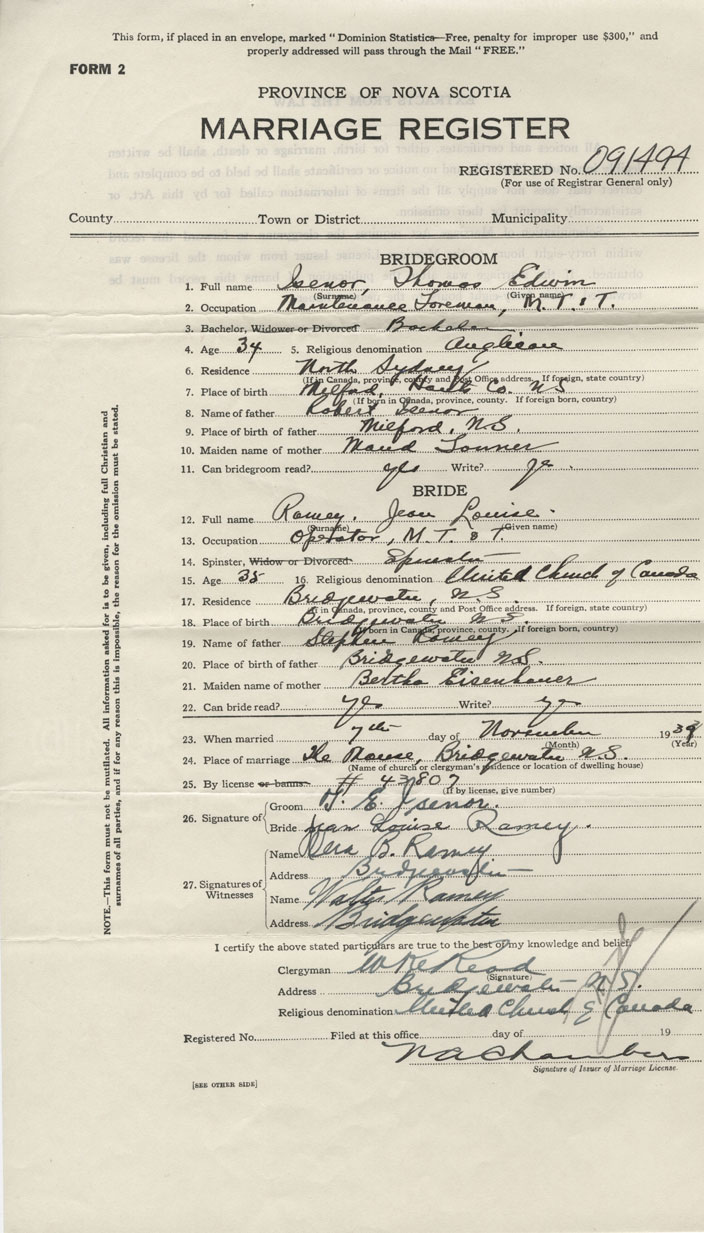 This form, if placed in an envelope, marked "Dominion Statistics—Free, penalty for improper use $300," and
properly addressed will pass through the Mail "FREE."
FORM 2
PROVINCE OF NOVA SCOTIA
MARRIAGE REGISTER
REGISTERED No. 091494
(For use of Registrar General only)
County Town or District Municipality
BRIDEGROOM
1. Full name Isenor, Thomas Edwin
(Surname) (Given name)
2. Occupation Maintenance Foreman, M. T. & T.
3. Bachelor, Widower or Divorced Bachelor
4. Age 34 5. Religious denomination Anglican
6. Residence North Sydney
(If in Canada, province, county and Post Office address. If foreign, state country)
7. Place of birth Milford, Hants Co. N S
(If born in Canada, province, county. If foreign born, county)
8. Name of father Robert Isenor
9. Place of birth of father Milford, N.S.
10. Maiden name of mother Maud
11. Can bridegroom read? yes Write? yes
BRIDE
12. Full name Ramey, Jean Louise
(Surname) (Given name)
13. Occupation Operator, M. T. & T.
14. Spinster, Widow or Divorced Spinster
15. Age 35 16. Religious denomination United Church of Canada
17. Residence Bridgewater, N.S.
(If in Canada, province, county and Post Office address. If foreign, state country)
18. Place of birth Bridgewater N.S.
(If born in Canada, province, county. If foreign born, county)
19. Name of father Stephen Ramey
20. Place of birth of father Bridgewater N.S.
21. Maiden name of mother Bertha Eisenhauer
22. Can bride read? yes Write? yes
23. When married 7th day of November 1939
(Month) (Year)
24. Place of marriage The Manse, Bridgewater N.S.
(Name of church or clergyman's residence or location of dwelling house)
25. By license or banns # 43807
(If by license, give number)
26. Signature of
Groom T. E. Isenor.
Bride Jean Louise Ramey.
27. Signatures of Witnesses
Name Vera B. Ramey
Address Bridgewater
Name Walter Ramey
Address Bridgewater
I certify the above stated particulars are true to the best of my knowledge and belief.
Clergyman Read
(Signature)
Address Bridgewater N.S.
Religious denomination United Church of Canada
Registered No. Filed at this office day of 19
N A Chambers
Signature of Issuer of Marriage License.
[SEE OTHER SIDE]
NOTE.—This form must not be mutilated. All information asked for is to be given, including full Christian and
surnames of all parties, and if for any reason this is impossible, the reason for the omission must be stated.